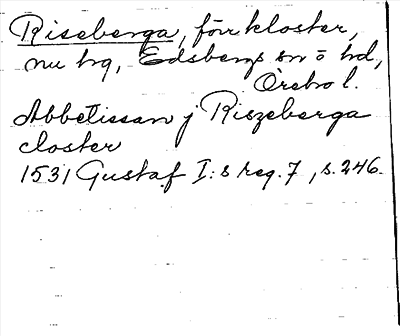 Riseberga, förr kloster,
nu hg, Edsbergs sn o hd,
Örebro l.
Abbetissan j Riszeberga
closter
1531 Gustaf I:s reg. 7, s. 246.